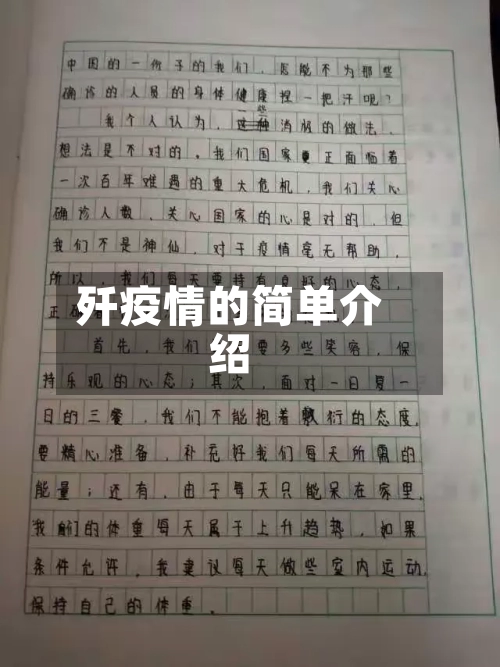 中国的一份子的我们，岂能不为那些
确诊的人员的身体健康捏一把汗呢？
我个人认为，一些消极的做法、
想法是不对的。我们国家更正面临着
一次百年难遇的重大危机，我们关心
确诊人数，关心国家的心是对的，但
我们不是神仙，对于疫情毫无帮助，
所以，我们每天要持有良好的心态，
正确
歼疫情的简单介
绍
首先，我们要多些笑容，保
持乐观的心态；其次，面对一日复一
日的三餐，我们不能抱着敷衍的态度，
要精心准备，补充好我们每天所需的
能量；还有，由于每天只能呆在家里，
我们的体重每天属于上升趋势，如果
条件允许，我建议每天做些室内运动，
保持自己的体重。